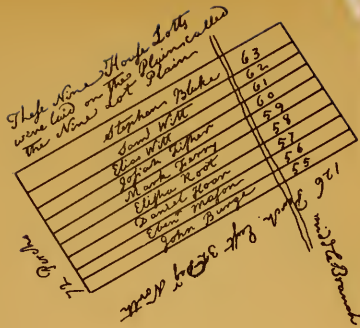 These Nine House Lotts
were laid on the Plain called
the Nine Lot Plain
Stephen Blake 63
Saml Witt 62
Elias Witt 61
Josiah Fisher 60
Mark Ferry 59
Elisha Root 58
Daniel Hoar 57
Eben Mason 56
John Bunge 55
72 Perch
East 34 Deg North
126 Perch